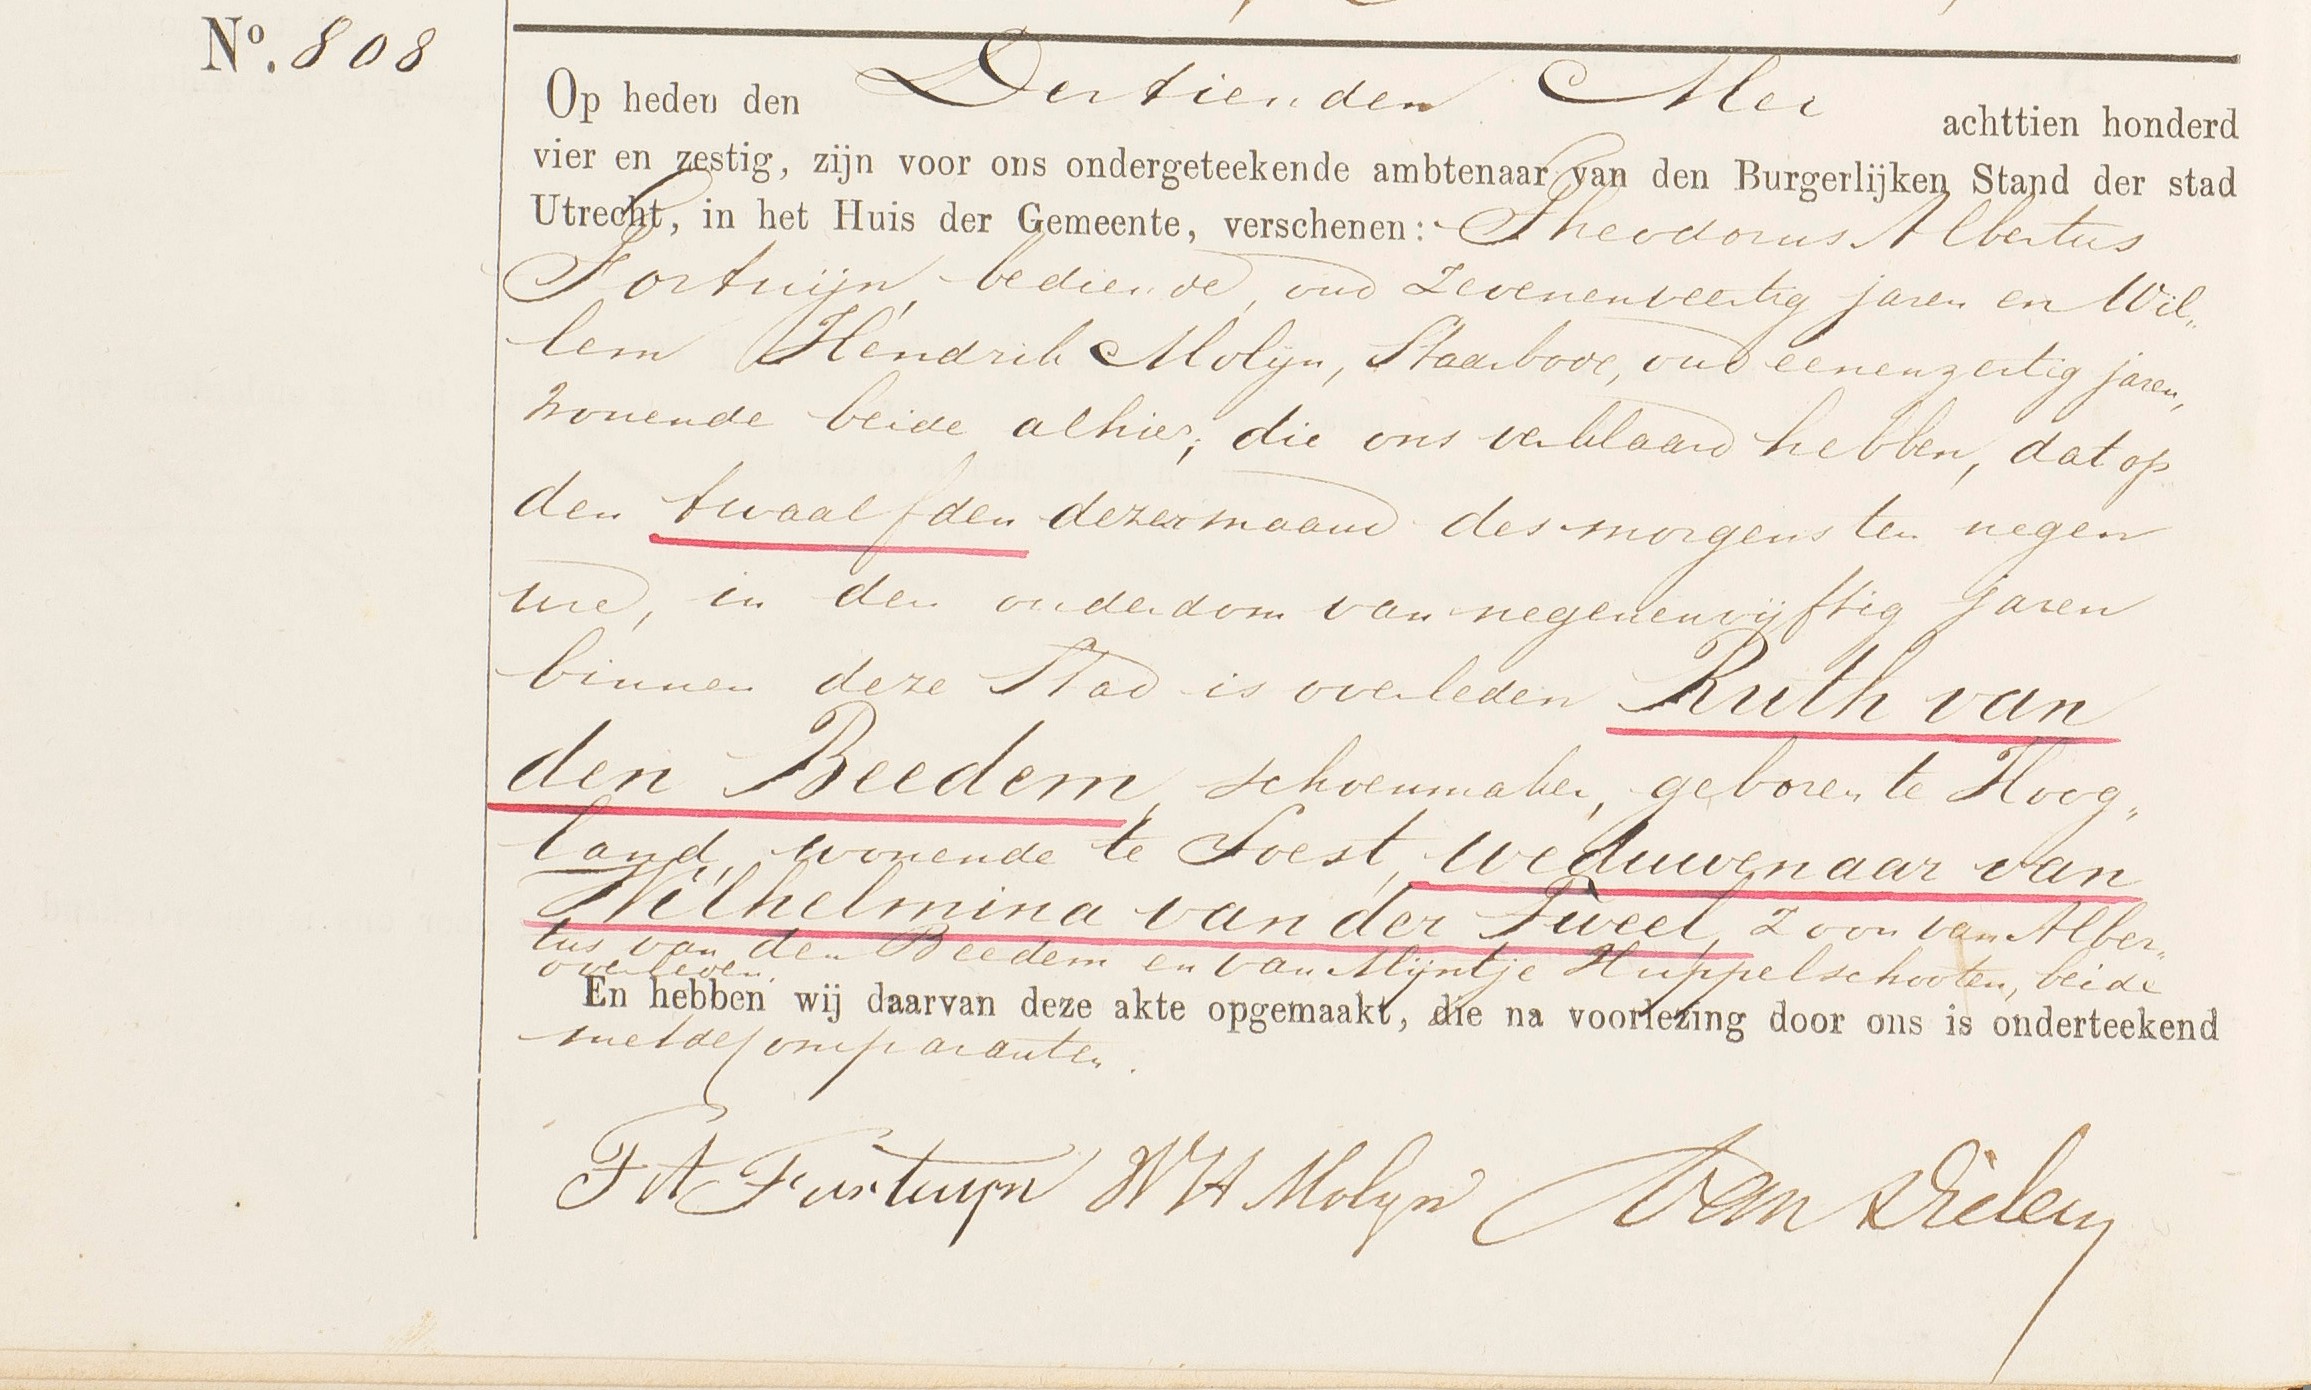 Nº. 808
Op heden den Dertienden Mei achttien honderd
vier en zestig, zijn voor ons ondergeteekende ambtenaar van den Burgerlijken Stand der stad
Utrecht, in het Huis der Gemeente, verschenen: Theodorus Albertus
Fortuijn, bediende, oud zevenenveertig jaren en Wil„
lem Hendrik Molijn, Stadsbode, oud eenenzestig jaren,
wonende beide alhier, die ons verklaard hebben, dat op
den twaalfden dezer maand des morgens ten negen
ure, in den ouderdom van negenenvijftig jaren
binnen deze Stad is overleden Ruth van
den Beedem, schoenmaker, geboren te Hoog„
land, wonende te Soest, weduwenaar van
Wilhelmina van der Tweel, Zoon van Alber„
tus van den Beedem en van Mijntje Huppelschooten, beide
overleden.
En hebben wij daarvan deze akte opgemaakt, die na voorlezing door ons is onderteekend
met de Comparanten.
Fortuyn WH Molyn van